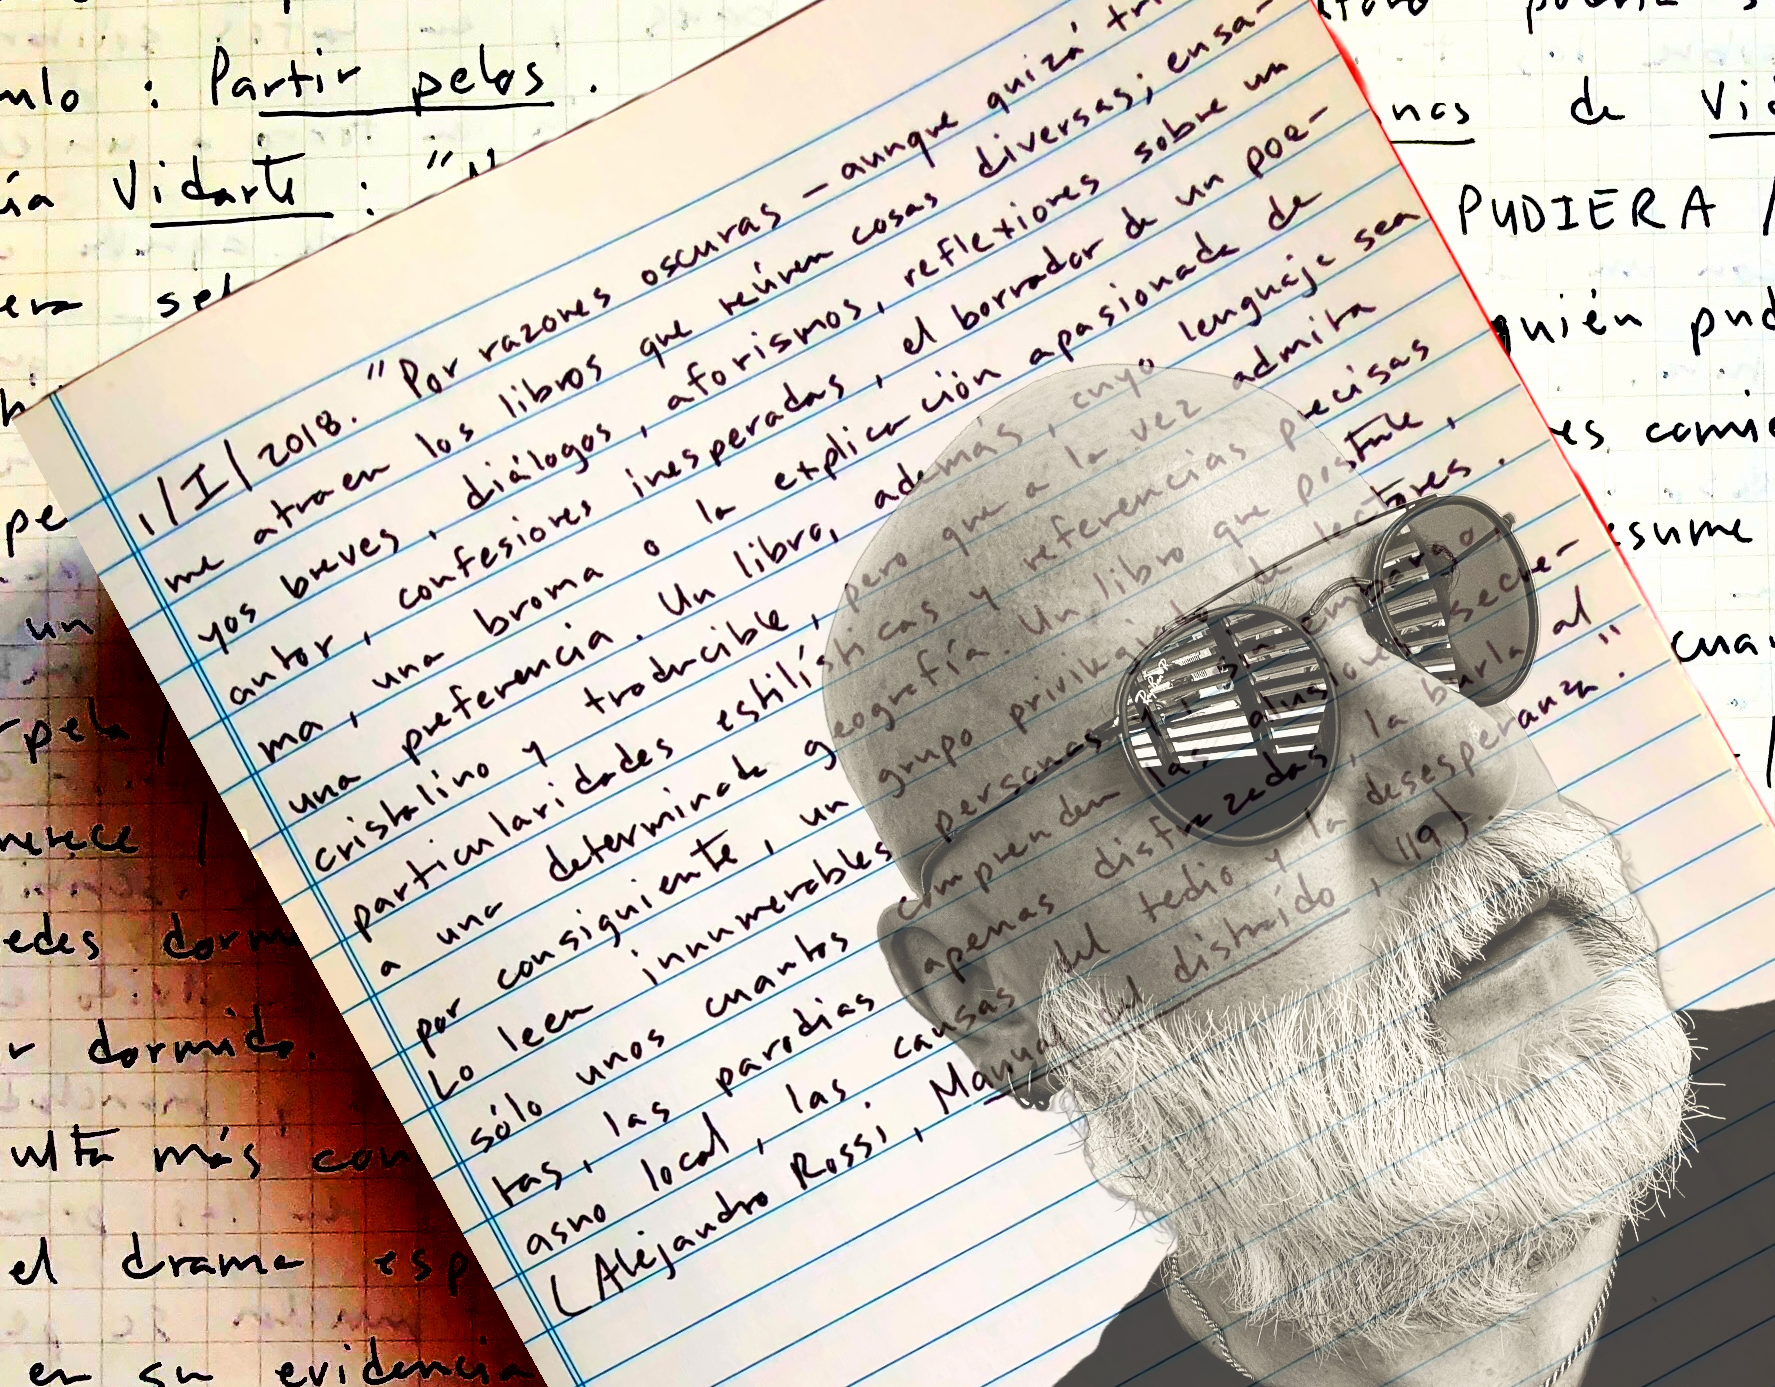 mlo : Partir pelos.
ía Vidarte :
era
pe
un
erpelo /
merece /
edes
r dormido.
más con
el drama esp
en su evidencia
1/I/2018. "Por razones oscuras — aunque quizá
me atraen los libros que reúnen cosas diversas; ensa-
yos breves, diálogos, aforismos, reflexiones sobre un
autor, confesiones inesperadas, el borrador de un poe-
ma, una broma o la explicación apasionada de
una preferencia. Un libro, además, cuyo lenguaje sea
cristalino y traducible, pero que a la vez admita
particularidades estilísticas y referencias precisas
a una determinada geografía. Un libro que postule,
por consiguiente, un grupo privilegiado de lectores.
Lo leen innumerables personas y, sin embargo,
sólo unos cuantos comprenden las alusiones secre-
tas, las parodias apenas disfrazadas, la burla al
asno local, las causas del tedio y la desesperanza".
(Alejandro Rossi, Manual del distraído, 119).
nas de
PUDIERA /
quién
es
esume